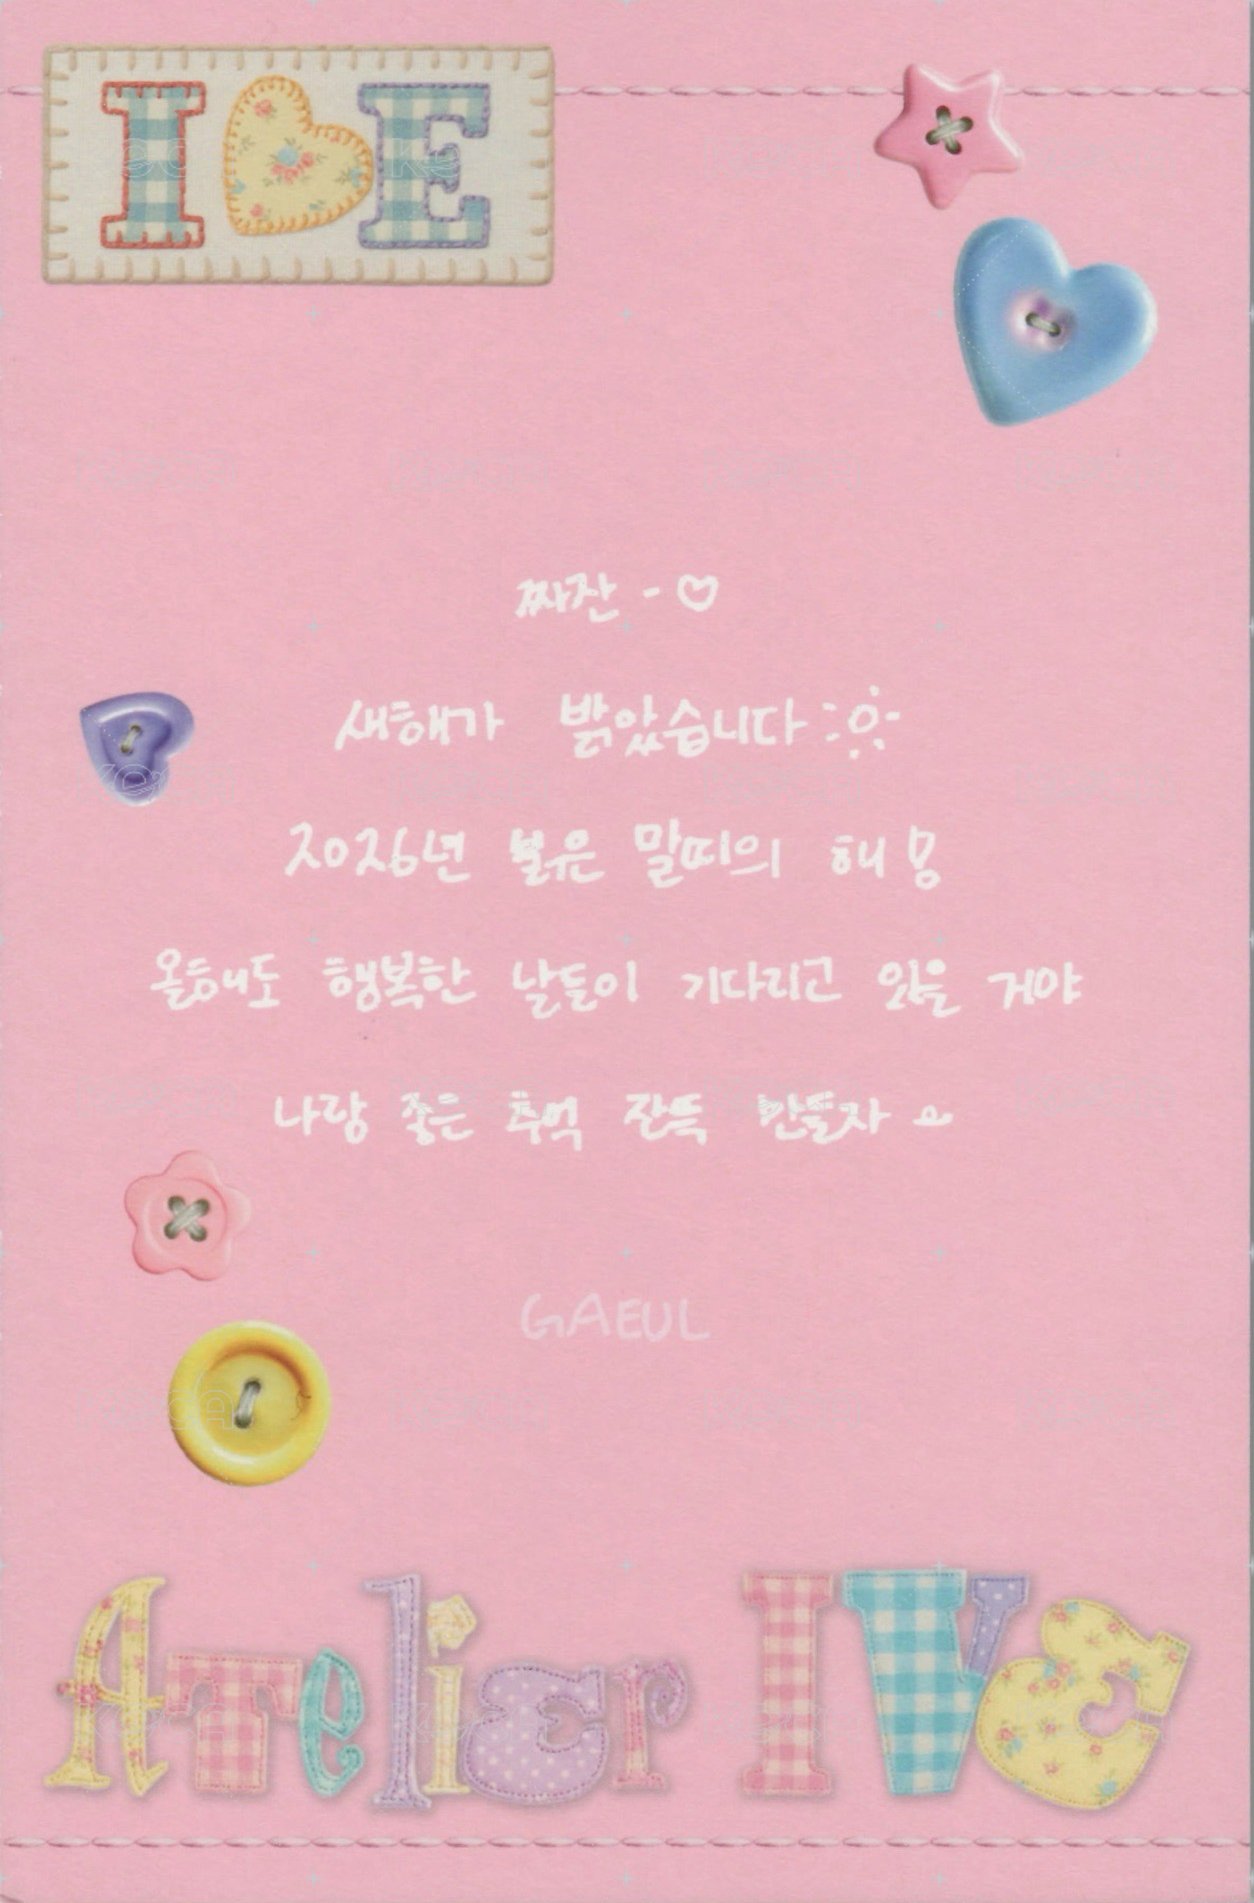 I♡E
짜잔 - ♡
새해가 밝았습니다
2026년 붉은 말띠의 해
올해도 행복한 날들이 기다리고 있을 거야
나랑 좋은 추억 잔뜩 만들자
GAEUL
Atelier IVE